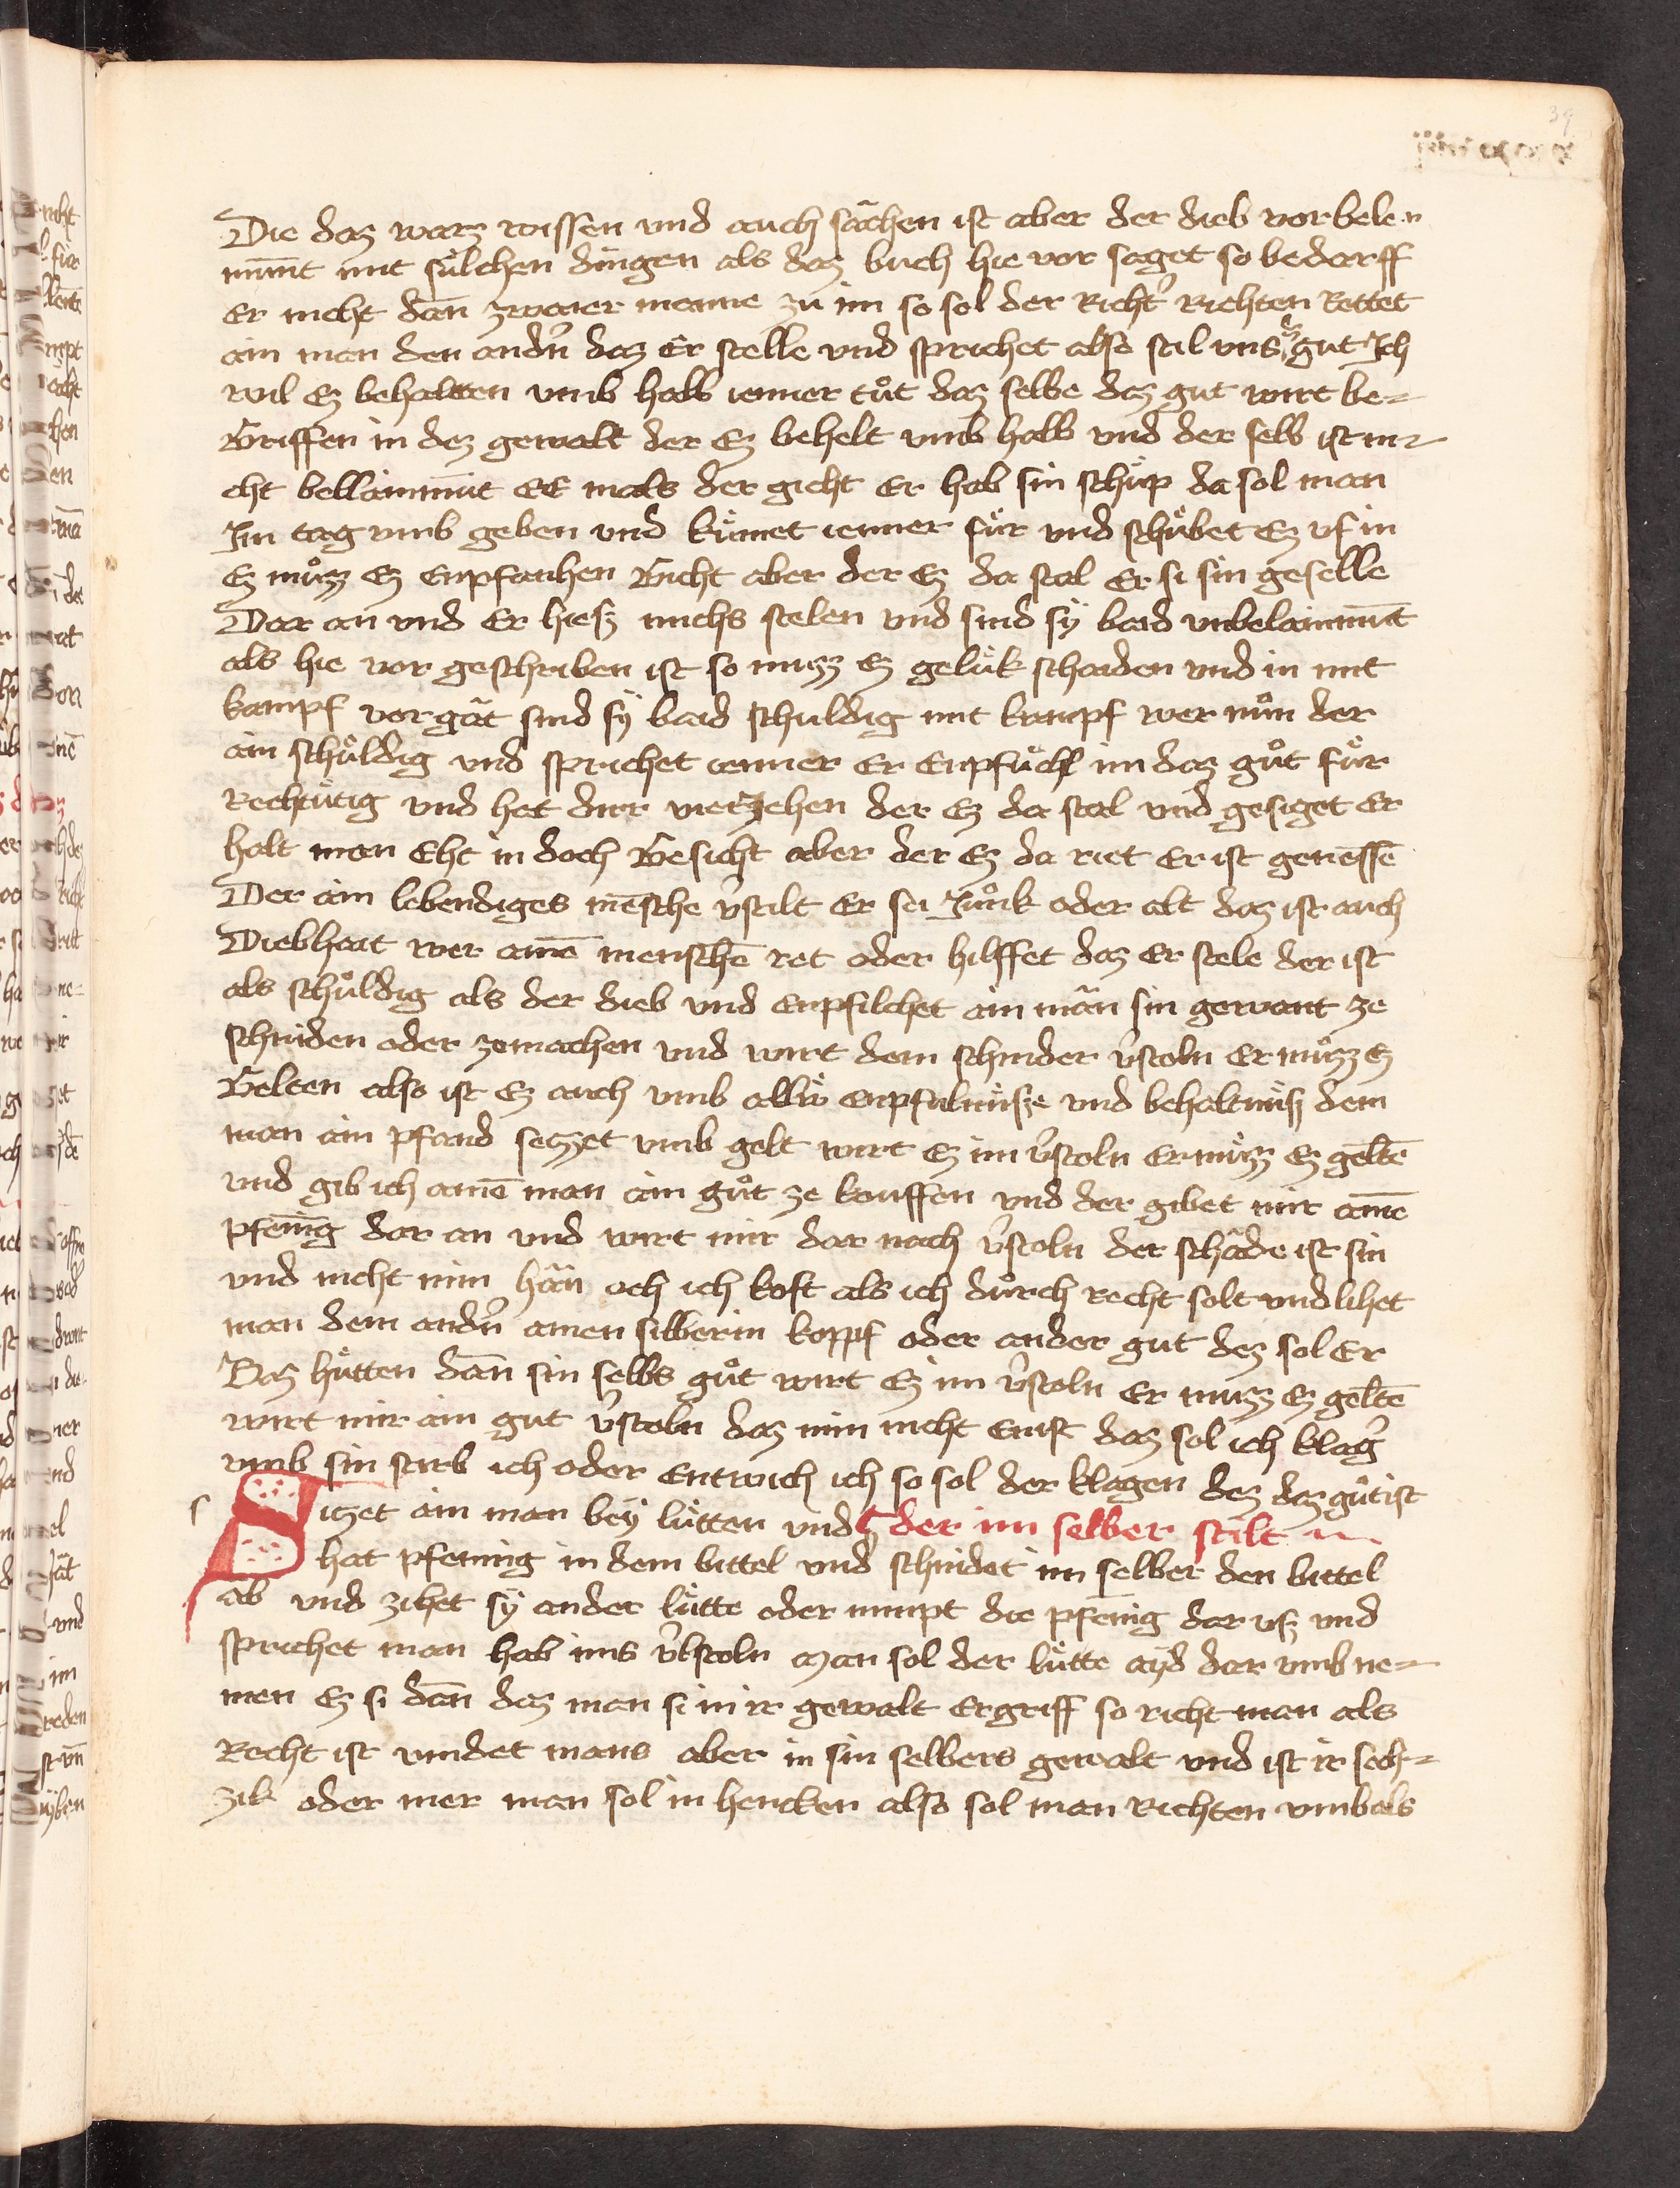 39
Die daz warz wissen vnd auch sâchen ist aber der dieb vor bele n
mūnt mit sülchen dingen als daz buch hie vor saget so bedarff
er nicht dañ zwaier manne zu im so sol der Richt' richten Rettet
ain man den andn̄ daz er stelle vnd sprichet also stil vns gut Ich
wil Ez behaltten vmb halb ienner tůt daz selbe daz gut wirt be=
Griffen in dez gewalt der Ez behelt vmb halb vnd der selb ist ni=
cht bellaimmūt EE mals der gicht Er hab sin schüp da sol man
Im tag vmb geben vnd kümet ienner für vnd schübet Ez vf in
Ez můzz Ez Enpfanhen Gicht aber der Ez da stal Er si sin geselle
Dar an vnd Er hiesz michs stelen vnd sind sÿ baid vnbelaimmūt
als hie vor geschriben ist so muzz Ez gelük schaiden vnd in mit
kampf vor gât sind sÿ baid schuldig mit kampf wer nůn der
ain schůldig vnd sprichet ienner Er Enpfůlh im daz gůt für
Rechtütig vnd hat dur vierzehen der Ez da stal vnd gesiget Er
halt man Eht in doch Gesicht aber der Ez da riet Er ist genessē
Der ain lebendiges mēsche v̄stilt Er sei Jůnk oder alt daz ist auch
Diebhait wer ainē menschē ret oder hilffet daz Er stele der ist
als schůldig als der dieb vnd enpfilchet ain mân sin gewant ze
schniden oder zemachen vnd wirt dem schnider v̄stoln Er můzz Ez
Gelten also ist Ez auch vmb allü enpfalnüsze vnd behaltnüsz dem
man ain pfand setzet vmb gelt wirt Ez im v̄stoln Er můzz Ez geltē
vnd gib ich ainē man ain gůt ze kouffen vnd der gibet mir ainē
pfenīg dar an vnd wirt mir dar nach v̄stoln der schâde ist sin
vnd nicht min hân och ich kost als ich důrch recht solt vnd lihet
man dem andn̄ ainen silberin koppf oder ander gut dez sol Er
Baz hütten dañ sin selbs gůt wirt Ez im v̄stoln Er muzz Ez geltē
wirt mir ain gut v̄stoln daz min nicht Enist daz sol ich klaḡ
vmb sin starb ich oder Entwich ich so sol der klagen dez daz gůt ist
Sitzet ain man beÿ lütten vnd der im selber stilt
hat pfening in dem bittel vnd schnidet im selber den bittel
ab vnd zihet sÿ ander lütte oder nimpt die pfening dar vsz vnd
sprichet man hab ims v̄stoln man sol der lütte aÿd dar vmb ne=
men Ez si dañ daz man si in ir gewalt Ergriff so richt man als
Recht ist vindet mans aber in sin selbers gewalt vnd ist ir sech=
zik oder mer man sol in hencken also sol man Richten vmb als